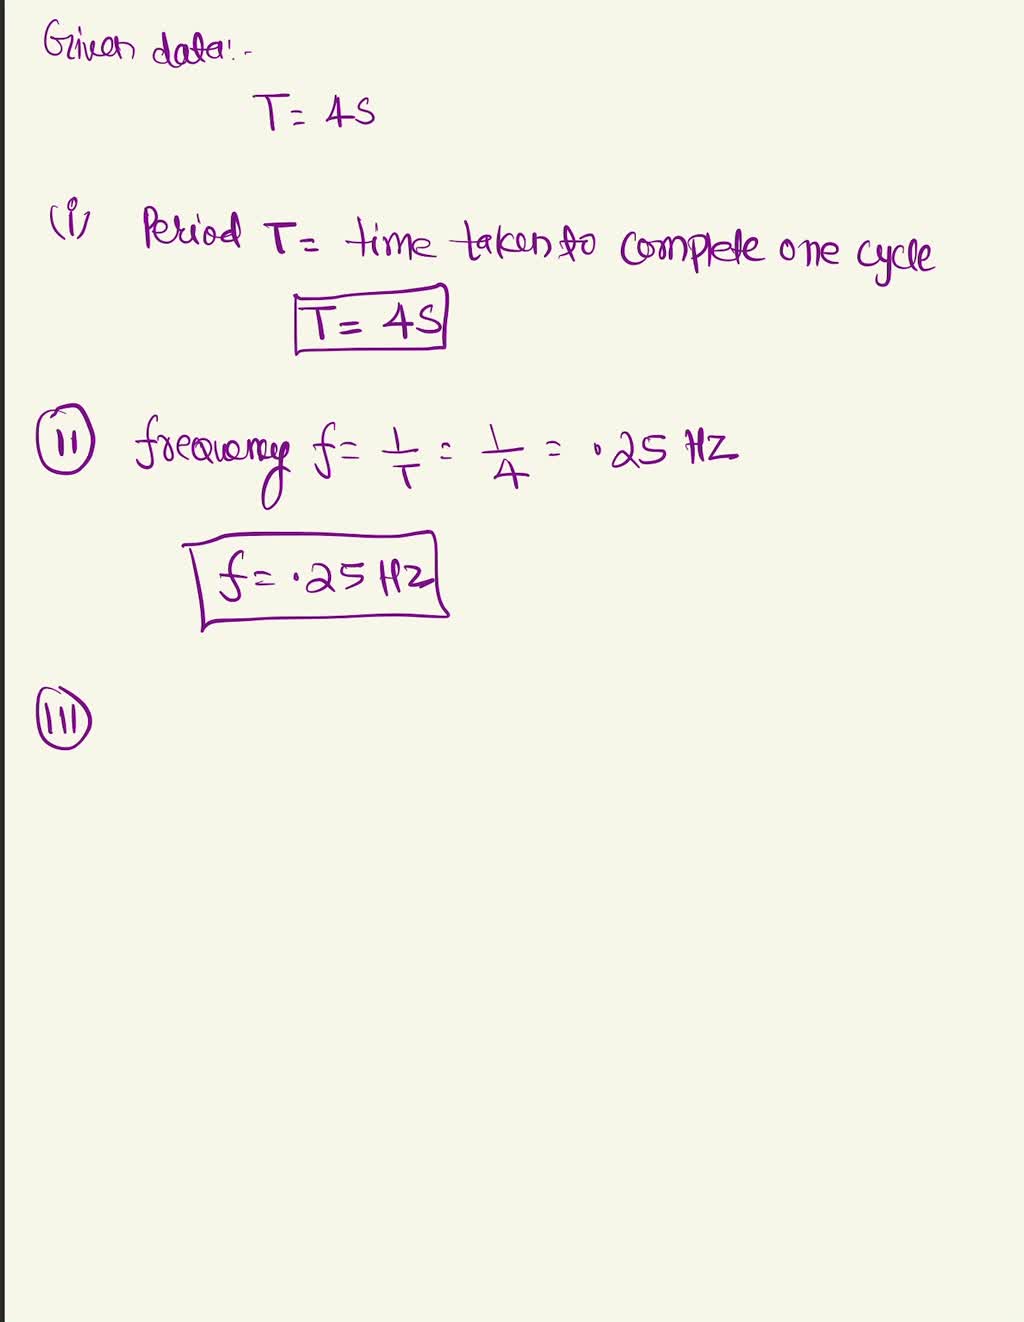 Given data:-
T = 4S
(i) Period T = time taken to complete one cycle
T = 4S
(ii) frequency f = 1/T = 1/4 = .25 HZ
f = .25 HZ
(iii)